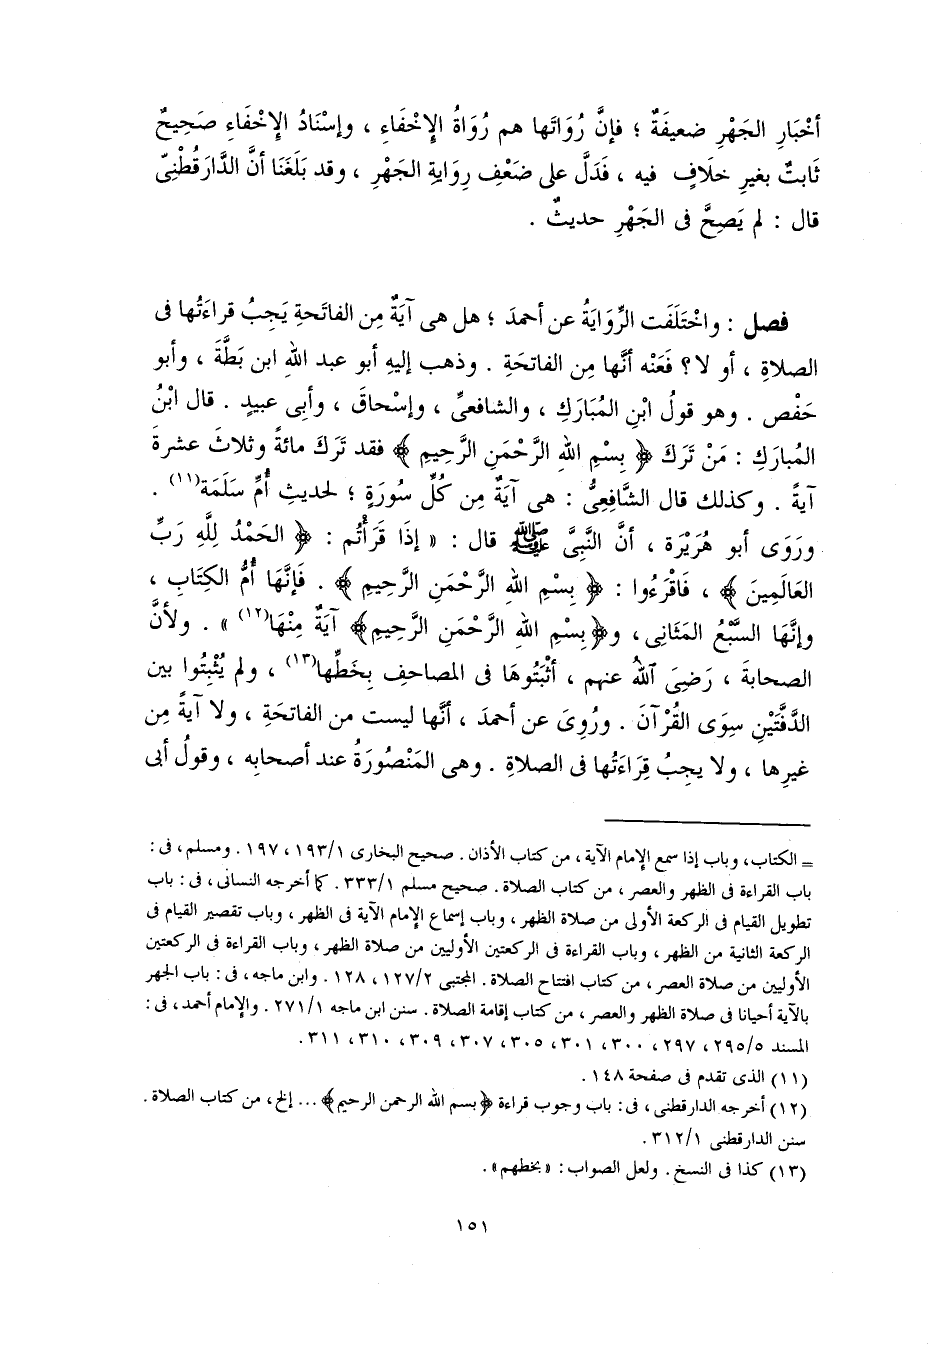 أَخْبَارِ الجَهْرِ ضعيفَةٌ ؛ فإنَّ رُوَاتَها هم رُوَاةُ الإِخْفَاءِ ، وإسْنَادُ الإِخْفَاءِ صَحِيحٌ
ثَابتٌ بغيرِ خلَافٍ فيه ، فَدَلَّ على ضَعْفِ رِوَايةِ الجَهْرِ ، وقد بَلَغَنا أنَّ الدَّارَقُطْنِىّ
قال : لم يَصِحَّ فى الجَهْرِ حديثٌ .
فصل : واخْتَلَفَت الرِّوَايَةُ عن أحمدَ ؛ هل هى آيَةٌ مِن الفاتَحةِ يَجِبُ قراءَتُها فى
الصلاةِ ، أو لا ؟ فَعَنْه أنَّها مِن الفاتحَةِ . وذهب إليهِ أبو عبد اللهِ ابن بَطَّةَ ، وأبو
حَفْص . وهو قولُ ابْنِ المُبَارَكِ ، والشافعىِّ ، وإسْحاقَ ، وأبى عبيدٍ . قال ابْنُ
المُبارَكِ : مَنْ تَرَكَ ﴿ بِسْمِ اللهِ الرَّحْمَنِ الرَّحِيمِ ﴾ فقد تَرَكَ مائةً وثلاثَ عشرةَ
آيةً . وكذلك قال الشَّافِعِىُّ : هى آيَةٌ مِن كُلِّ سُورَةٍ ؛ لحديثِ أُمِّ سَلَمَة(١١) .
ورَوَى أبو هُرَيْرَة ، أنَّ النَّبِىَّ ﷺ قال : « إذَا قَرَأْتُم : ﴿ الحَمْدُ لِلَّهِ رَبِّ
العَالَمِينَ ﴾ ، فَاقْرَءُوا : ﴿ بِسْمِ اللهِ الرَّحْمَنِ الرَّحِيمِ ﴾ . فَإِنَّهَا أُمُّ الكِتَابِ ،
وإنَّهَا السَّبْعُ المَثَانِى ، و﴿بِسْمِ اللهِ الرَّحْمَنِ الرَّحِيمِ﴾ آيَةٌ مِنْهَا(١٢) » . ولأنَّ
الصحابةَ ، رَضِىَ اللهُ عنهم ، أثْبَتُوهَا فى المصاحفِ بِخَطِّها(١٣) ، ولم يُثْبِتُوا بين
الدَّفَّتَيْنِ سِوَى القُرْآنَ . ورُوِىَ عن أحمدَ ، أنَّها ليست من الفاتحَةِ ، ولا آيةً مِن
غيرِها ، ولا يجِبُ قِرَاءَتُها فى الصلاةِ . وهى المَنْصُورَةُ عند أصحابِه ، وقولُ أبى
= الكتاب ، وباب إذا سمع الإمام الآية ، من كتاب الأذان . صحيح البخارى ١٩٣/١ ، ١٩٧ . ومسلم ، فى :
باب القراءة فى الظهر والعصر ، من كتاب الصلاة . صحيح مسلم ٣٣٣/١ . كما أخرجه النسائى ، فى : باب
تطويل القيام فى الركعة الأولى من صلاة الظهر ، وباب إسماع الإمام الآية فى الظهر ، وباب تقصير القيام فى
الركعة الثانية من الظهر ، وباب القراءة فى الركعتين الأوليين من صلاة الظهر ، وباب القراءة فى الركعتين
الأوليين من صلاة العصر ، من كتاب افتتاح الصلاة . المجتبى ١٢٧/٢ ، ١٢٨ . وابن ماجه ، فى : باب الجهر
بالآية أحيانا فى صلاة الظهر والعصر ، من كتاب إقامة الصلاة . سنن ابن ماجه ٢٧١/١ . والإمام أحمد ، فى :
المسند ٢٩٥/٥ ، ٢٩٧ ، ٣٠٠ ، ٣٠١ ، ٣٠٥ ، ٣٠٧ ، ٣٠٩ ، ٣١٠ ، ٣١١ .
(١١) الذى تقدم فى صفحة ١٤٨ .
(١٢) أخرجه الدارقطنى ، فى : باب وجوب قراءة ﴿بسم الله الرحمن الرحيم﴾ ... إلخ ، من كتاب الصلاة .
سنن الدارقطنى ٣١٢/١ .
(١٣) كذا فى النسخ . ولعل الصواب : «بخطهم» .
١٥١